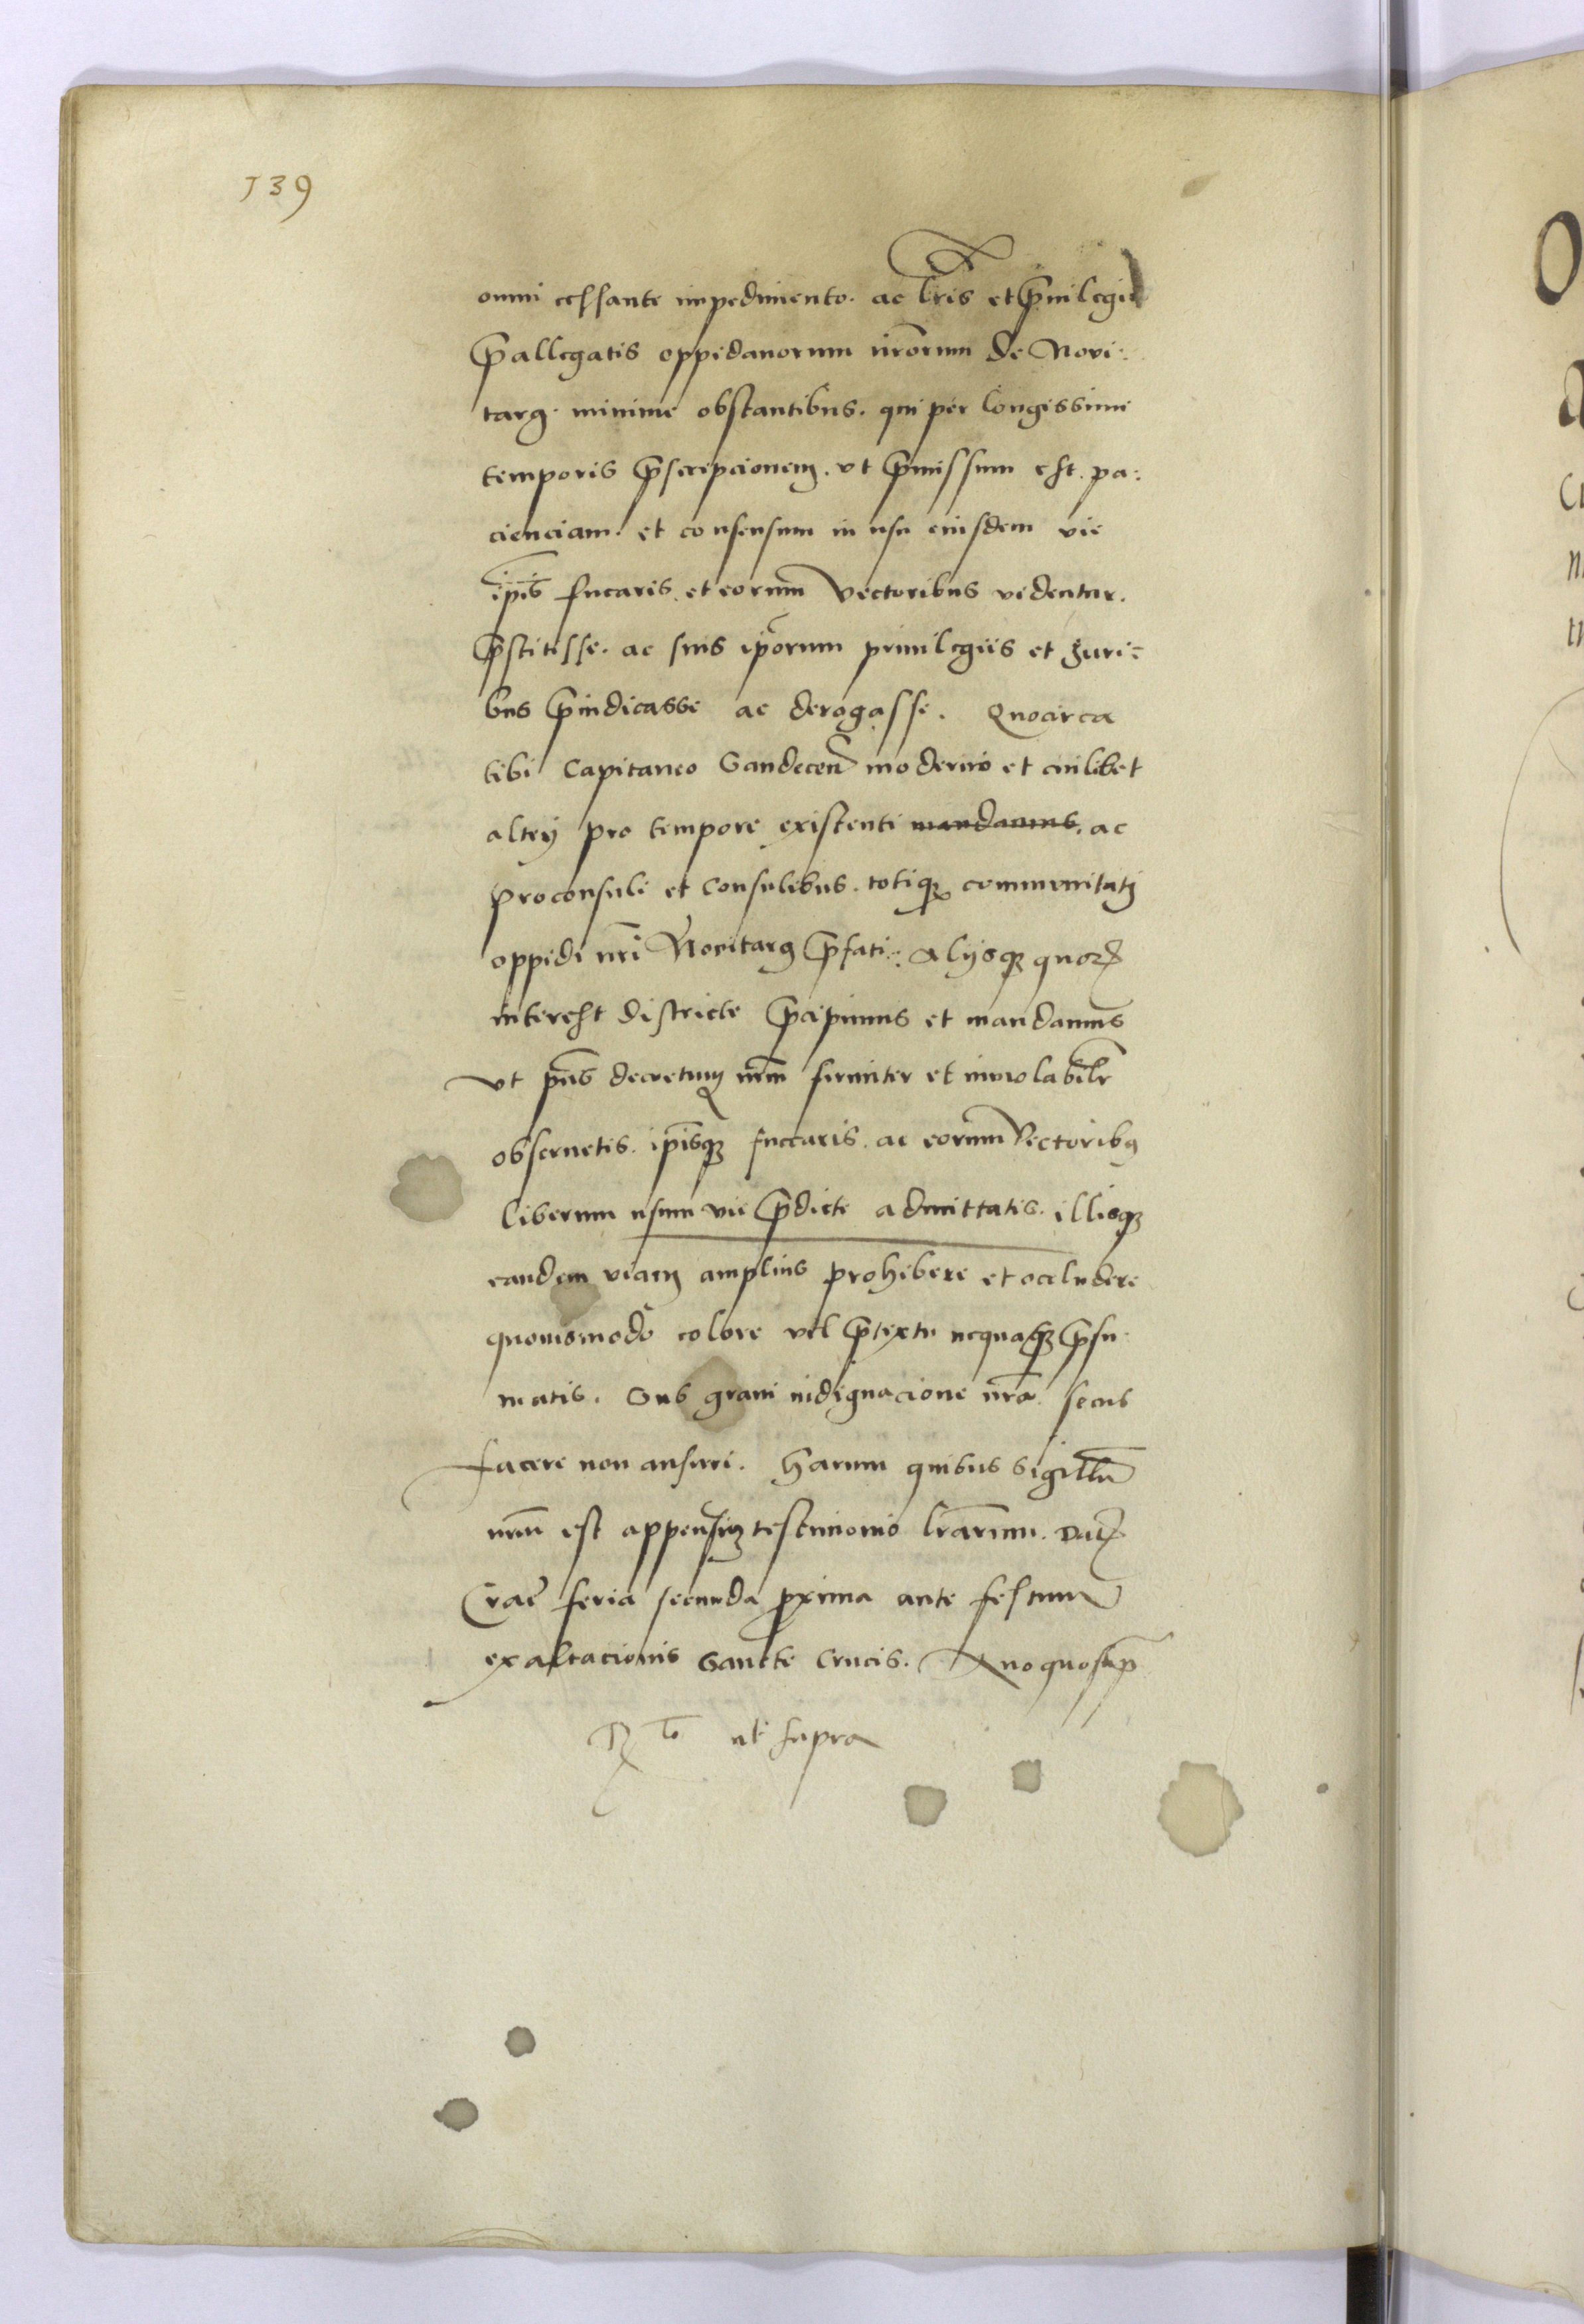 139
omni cessante impedimento. ac lris et privilegiis
pallegatis oppidanorum nrorum de Novi:
targ. minime obstantibus. qui per longissimi
temporis pscripcionem. vt pmissum est. pa:
cienciam. et consensum in usu eiusdem vie
ipis fucaris. et eorum vectoribus videntur.
pstitisse. ac suis iporum privilegiis et juri=
bus piudicasse ac derogasse. Quocirca
tibi Capitaneo Sandecen moderno et cuilibet
alterj pro tempore existenti mandamus. ac
proconsuli et Consulibus. totiq communitatj
oppidi nri Novitarg pfati. Alijsq quor
interest districte pcipimus et mandamus
vt pns decretum nrm firmiter et inviolabilr
observetis. ipisq fuccaris. ac eorum Vectoribus
liberum usum vie pdicte admittatis. illisq
eandem viam amplius prohibere et occludere
quovismodo colore vel ptextu nequaq psu
matis. Sub gravi indignacione nra. secus
facere non ausuri. Harum quibus Sigillu
nrm est appensum testimonio lrarum. Dat
Crac feria secunda pxima ante festum
exaltacionis Sancte Crucis. Anno quo sup
Rto ut supra